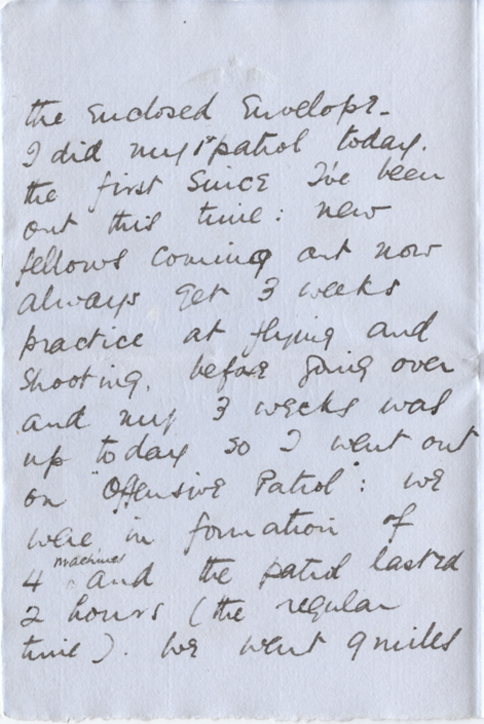 the enclosed envelope.
I did my 1st patrol today.
the first since I've been
out this time: new
fellows coming out now
always get 3 weeks
practice at flying and
shooting. before going over
and my 3 weeks was
up today so I went out
on "Offensive Patrol": we
were in formation of
4 machines and the patrol lasted
2 hours (the regular
time). we went 9 miles